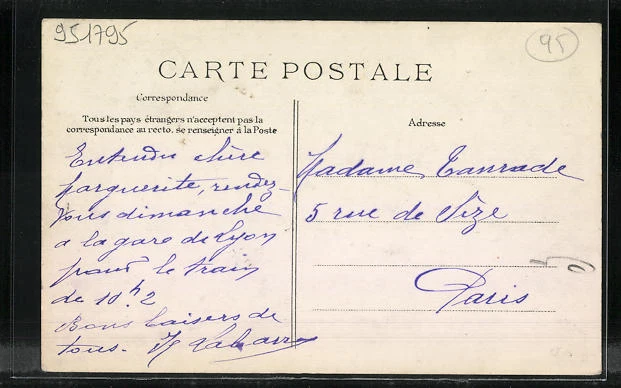 951795
95
CARTE POSTALE
Correspondance
Tous les pays étrangers n'acceptent pas la
correspondance au recto, se renseigner à la Poste
Adresse
Entendu chère
Marguerite, rendez-
vous dimanche
a la gare de Lyon
pour le train
de 10h2
Bons baisers de
tous.
Madame Tanrade
5 rue de Sèze
Paris